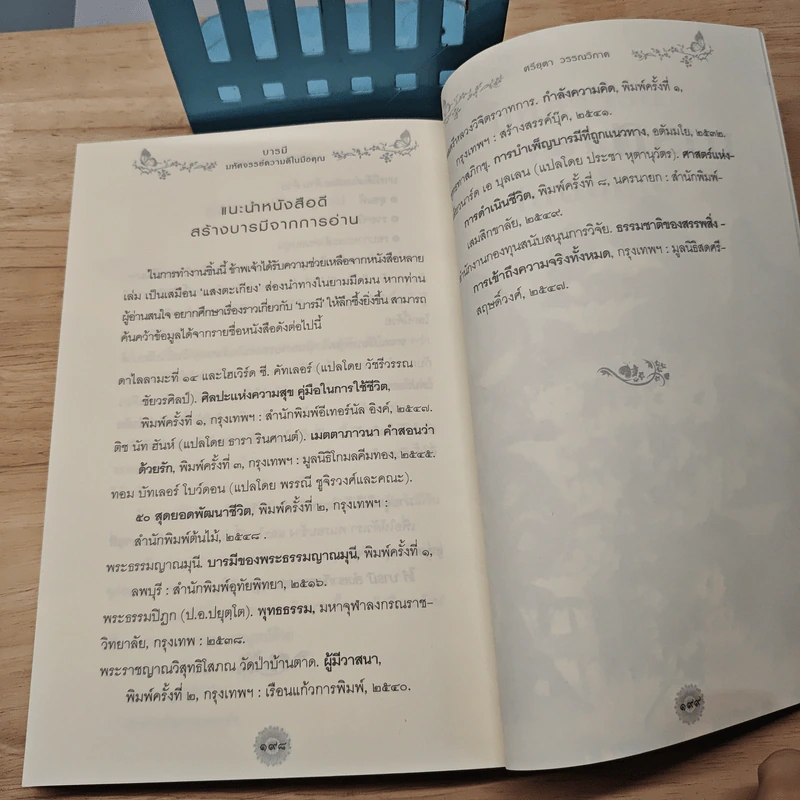 บารมี
มหัศจรรย์ความดีในมือคุณ
แนะนำหนังสือดี
สร้างบารมีจากการอ่าน
ในการทำงานชิ้นนี้ ข้าพเจ้าได้รับความช่วยเหลือจากหนังสือหลาย
เล่ม เป็นเสมือน ‘แสงตะเกียง’ ส่องนำทางในยามมืดมน หากท่าน
ผู้อ่านสนใจ อยากศึกษาเรื่องราวเกี่ยวกับ ‘บารมี’ ให้ลึกซึ้งยิ่งขึ้น สามารถ
ค้นคว้าข้อมูลได้จากรายชื่อหนังสือดังต่อไปนี้
ดาไลลามะที่ ๑๔ และโฮเวิร์ด ซี. คัทเลอร์ (แปลโดย วัชรีวรรณ
ชัยวรศิลป์). ศิลปะแห่งความสุข คู่มือในการใช้ชีวิต,
พิมพ์ครั้งที่ ๑, กรุงเทพฯ : สำนักพิมพ์อีเทอร์นัล อิงค์, ๒๕๔๗.
ติช นัท ฮันห์ (แปลโดย ธารา รินศานต์). เมตตาภาวนา คำสอนว่า
ด้วยรัก, พิมพ์ครั้งที่ ๓, กรุงเทพฯ : มูลนิธิโกมลคีมทอง, ๒๕๔๕.
ทอม บัทเลอร์ โบว์ดอน (แปลโดย พรรณี ชูจิรวงศ์และคณะ).
๕๐ สุดยอดพัฒนาชีวิต, พิมพ์ครั้งที่ ๒, กรุงเทพฯ :
สำนักพิมพ์ต้นไม้, ๒๕๔๘ .
พระธรรมญาณมุนี. บารมีของพระธรรมญาณมุนี, พิมพ์ครั้งที่ ๑,
ลพบุรี : สำนักพิมพ์อุทัยพิทยา, ๒๕๑๖.
พระธรรมปิฎก (ป.อ.ปยุตฺโต). พุทธธรรม, มหาจุฬาลงกรณราช-
วิทยาลัย, กรุงเทพ : ๒๕๓๘.
พระราชญาณวิสุทธิโสภณ วัดป่าบ้านตาด. ผู้มีวาสนา,
พิมพ์ครั้งที่ ๒, กรุงเทพฯ : เรือนแก้วการพิมพ์, ๒๕๔๐.
๑๙๘
ตรียุดา วรรณวิกาต
หลวงวิจิตรวาทการ. กำลังความคิด, พิมพ์ครั้งที่ ๑,
กรุงเทพฯ : สร้างสรรค์บุ๊ค, ๒๕๔๑.
ทาสภิกขุ. การบำเพ็ญบารมีที่ถูกแนวทาง, อตัมมโย, ๒๕๓๒.
นาร์ด เอ บุลเลน (แปลโดย ประชา หุตานุวัตร). ศาสตร์แห่ง-
การดำเนินชีวิต, พิมพ์ครั้งที่ ๘, นครนายก : สำนักพิมพ์-
เสมสิกขาลัย, ๒๕๔๙.
สำนักงานกองทุนสนับสนุนการวิจัย. ธรรมชาติของสรรพสิ่ง -
การเข้าถึงความจริงทั้งหมด, กรุงเทพฯ : มูลนิธิสดศรี-
สฤษดิ์วงศ์, ๒๕๔๗.
๑๙๙